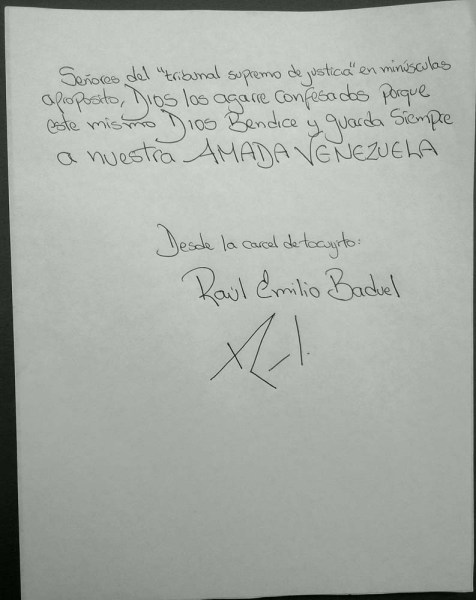 Señores del "tribunal supremo de justicia" en minúsculas
apropósito, Dios los agarre confesados porque
este mismo Dios Bendice y guarda Siempre
a nuestra AMADA VENEZUELA
Desde la carcel de tocuyito:
Raúl Emilio Baduel